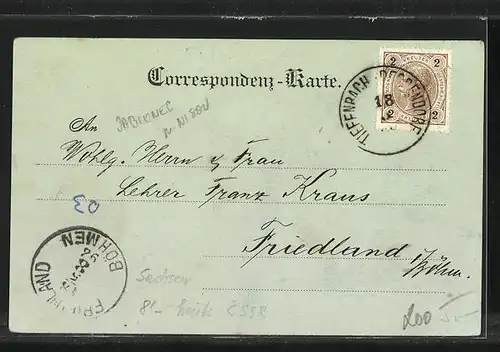 2 2
2 2
TIEFENBACH-DESSENDORF
18
Correspondenz-Karte.
JABLONEC
n. NISOU
An
Wohlg. Herrn & Frau
Lehrer Franz Kraus
03
Friedland i/Böhm.
FRIEDLAND
BÖHMEN
Sachsen
8!– heute ČSSR
200